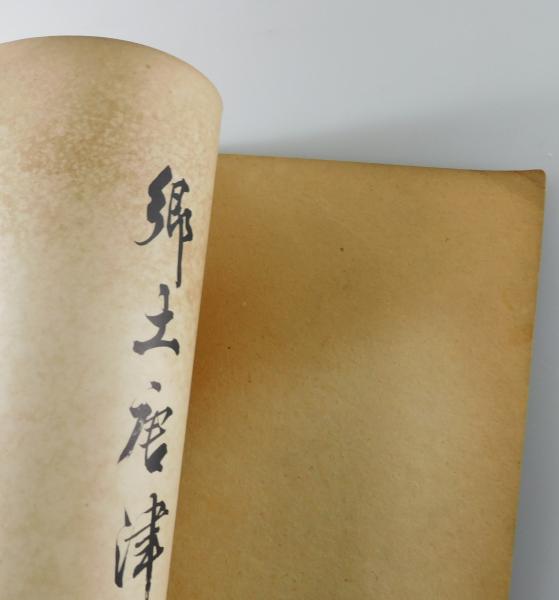 郷土唐津